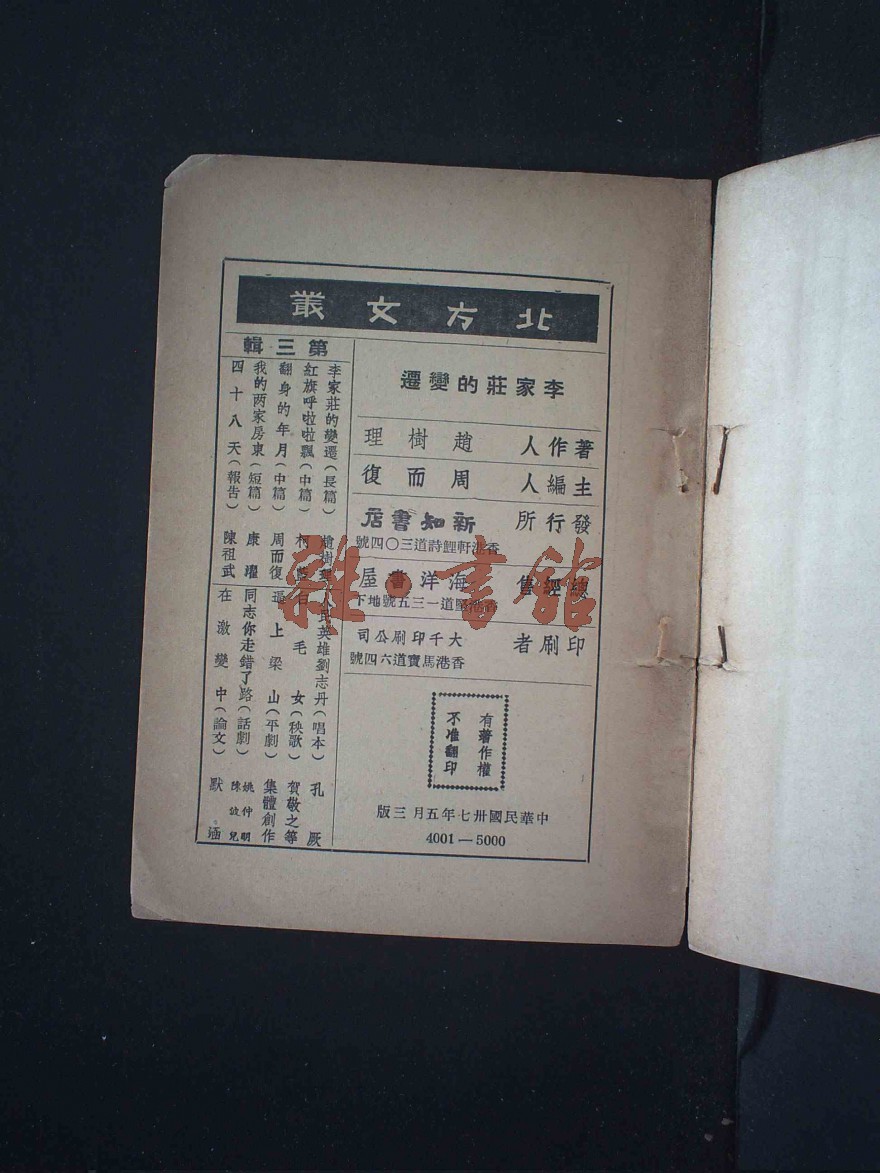 北方文叢
李家莊的變遷
著作人 趙樹理
主編人 周而復
發行所 新知書店
香港軒鯉詩道三〇四號
總經售 海洋書屋
香港堅道一三五號地下
印刷者 大千印刷公司
香港馬寶道六四號
有著作權
不准翻印
中華民國卅七年五月三版
4001—5000
第三輯
李家莊的變遷(長篇) 趙樹理
紅旗呼啦啦飄(中篇) 柯藍
翻身的年月(中篇) 周而復
我的两家房東(短篇) 康濯
四十八天(報告) 陳祖武
人民英雄劉志丹(唱本) 孔厥
白毛女(秧歌) 賀敬之等
逼上梁山(平劇) 集體創作
同志你走錯了路(話劇) 姚仲明 陳波兒
在激變中(論文) 默涵
雜·書館